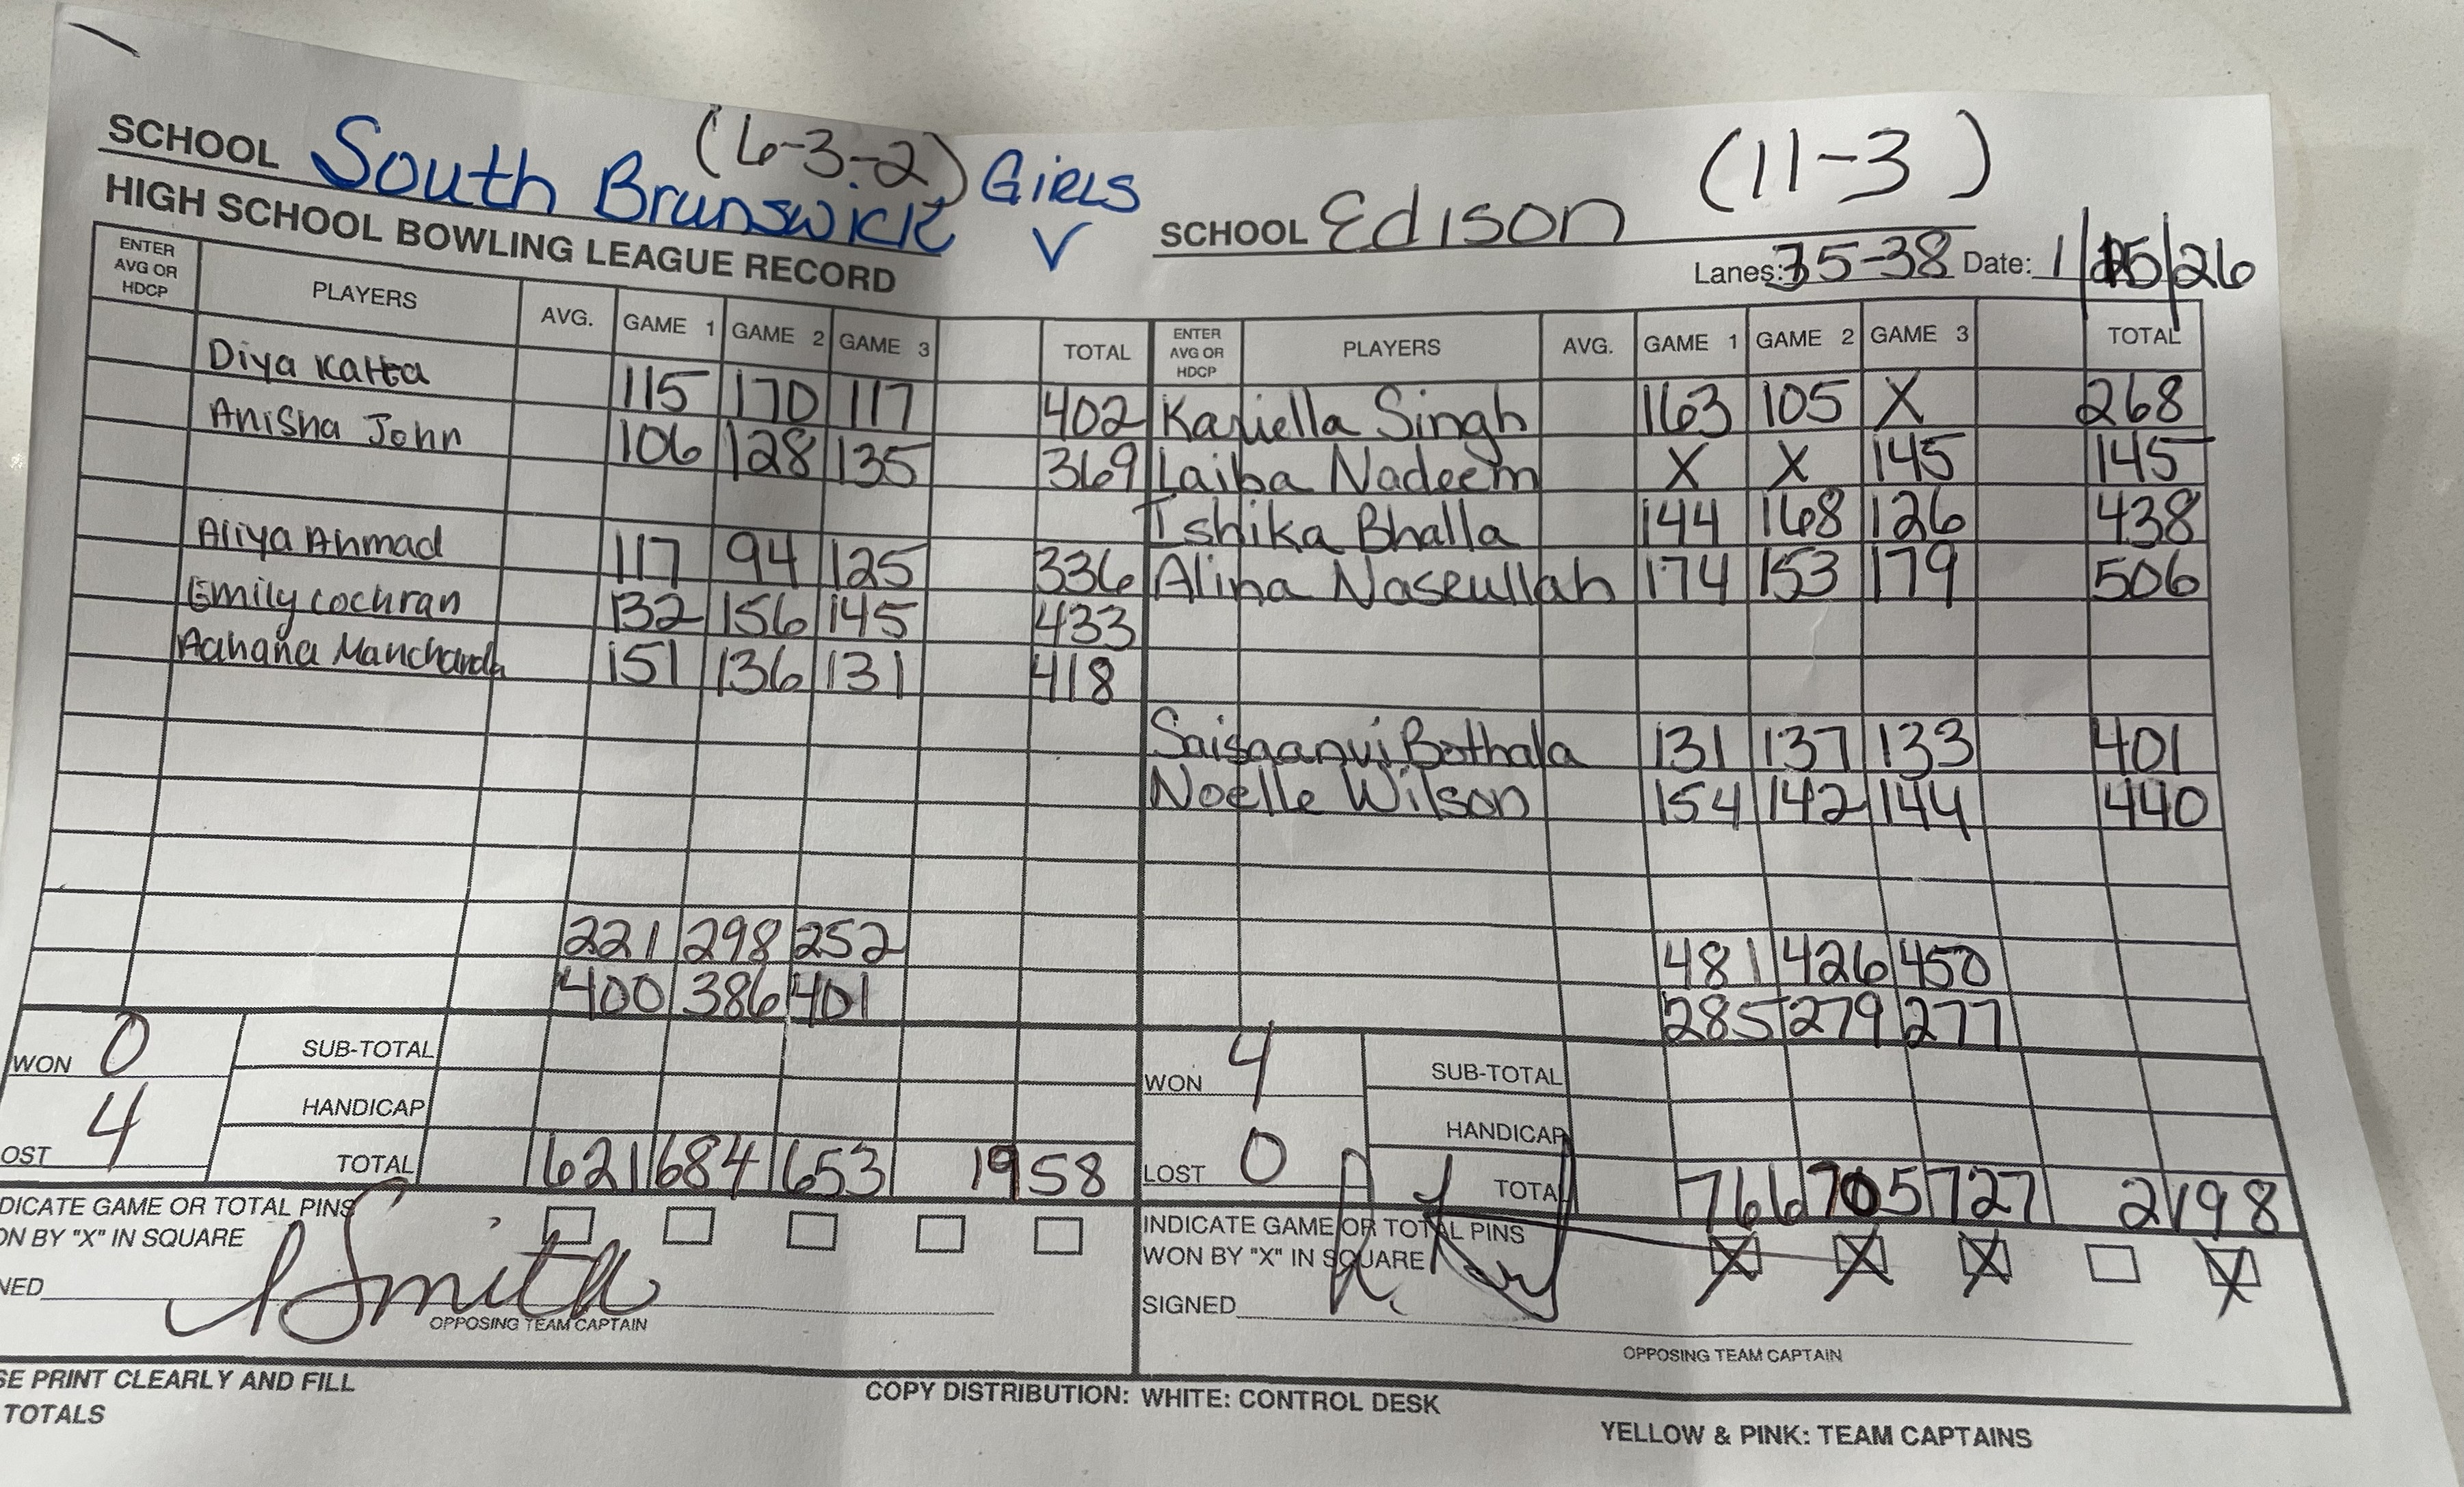 SCHOOL South Brunswick (6-3-2) GIRLS V
HIGH SCHOOL BOWLING LEAGUE RECORD
ENTER AVG OR HDCP PLAYERS AVG. GAME 1 GAME 2 GAME 3 TOTAL
Diya Katta 115 170 117 402
Anisha John 106 128 135 369
Aliya Ahmad 117 94 125 336
Emily Cochran 132 156 145 433
Aahana Manchanda 151 136 131 418
221 298 252
400 386 401
WON 0 SUB-TOTAL
HANDICAP
OST 4 TOTAL 621 684 653 1958
DICATE GAME OR TOTAL PINS
ON BY "X" IN SQUARE
NED Smith
OPPOSING TEAM CAPTAIN
SE PRINT CLEARLY AND FILL
TOTALS
SCHOOL Edison (11-3)
Lanes: 35-38 Date: 1/15/26
ENTER AVG OR HDCP PLAYERS AVG. GAME 1 GAME 2 GAME 3 TOTAL
Singh 163 105 X 268
Laiba Nadeem X X 145 145
Ishika Bhalla 144 168 126 438
Alina Naseullah 174 153 179 506
Bothala 131 137 133 401
Noelle Wilson 154 142 144 440
481 426 450
285 279 277
WON 4 SUB-TOTAL
HANDICAP
LOST 0 TOTAL 766 705 727 2198
INDICATE GAME OR TOTAL PINS
WON BY "X" IN SQUARE X X X X
SIGNED
OPPOSING TEAM CAPTAIN
COPY DISTRIBUTION: WHITE: CONTROL DESK
YELLOW & PINK: TEAM CAPTAINS